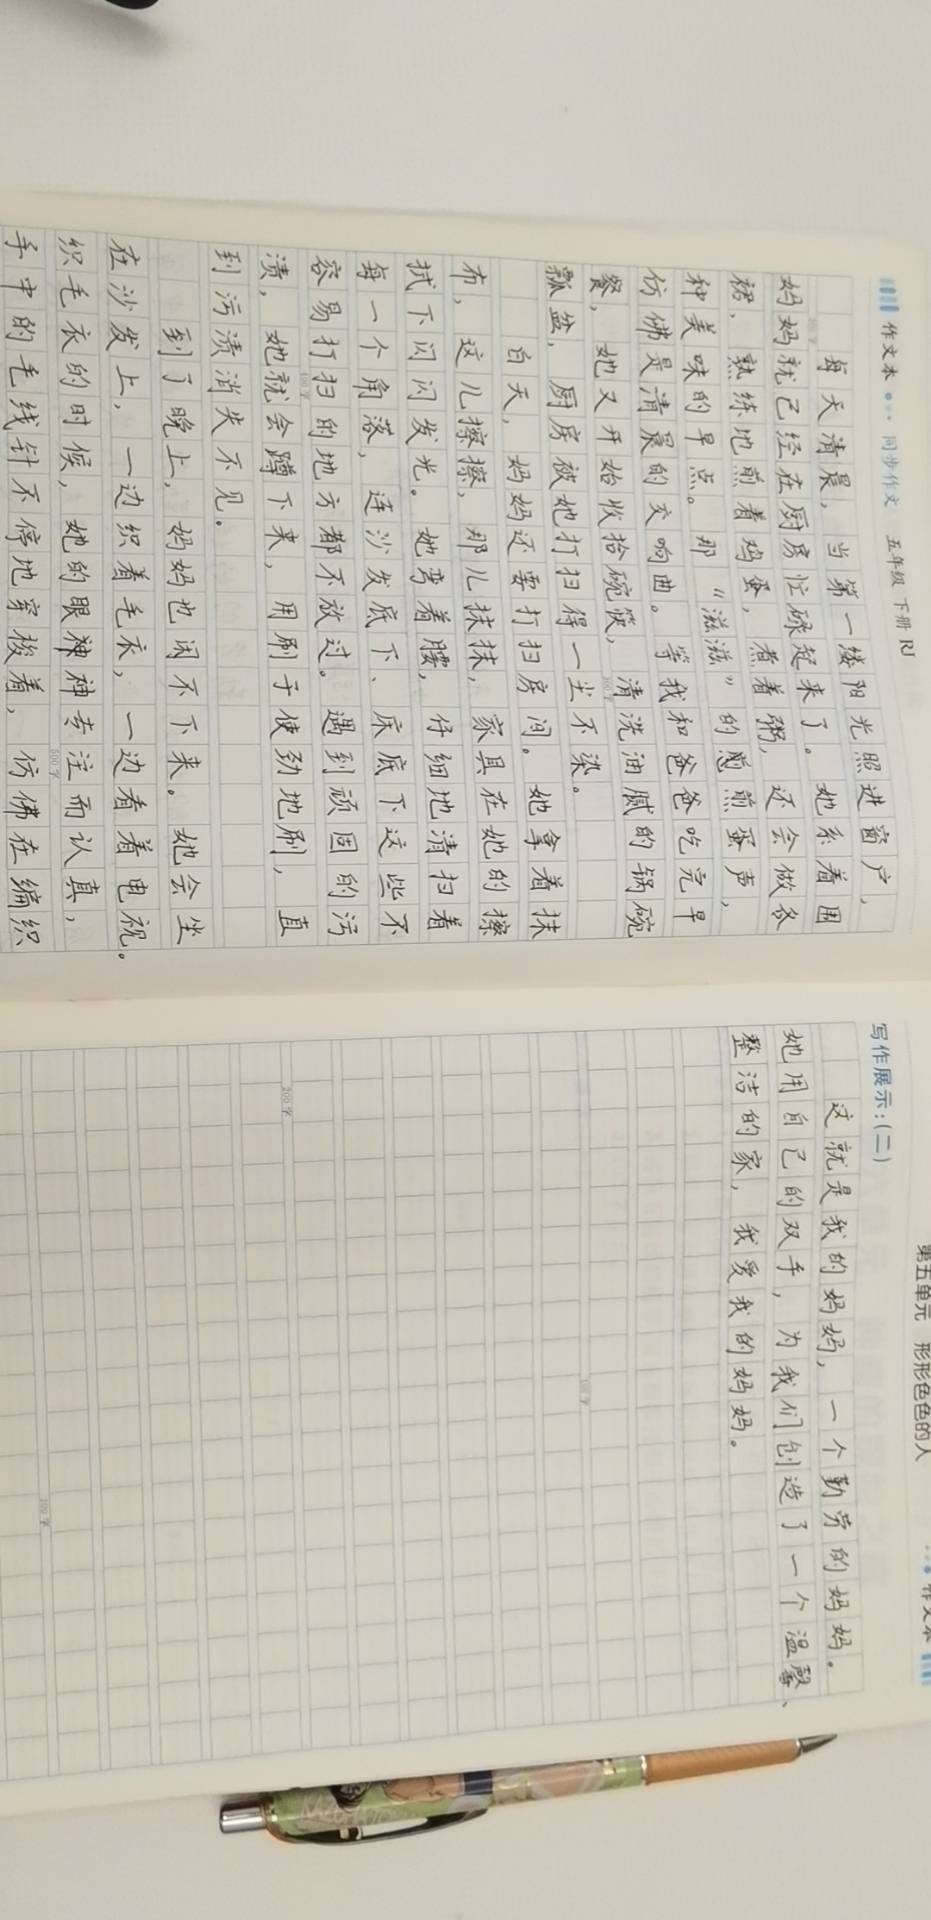 作文本 同步作文 五年级 下册 RJ
每天清晨，当第一缕阳光照进窗户，
妈妈就已经在厨房忙碌起来了。她系着围
裙，熟练地煎着鸡蛋，煮着粥，还会做各
种美味的早点。那“滋滋”的煎蛋声，
仿佛是清晨的交响曲。等我和爸爸吃完早
餐，她又开始收拾碗筷，清洗油腻的锅碗
瓢盆，厨房被她打扫得一尘不染。
白天，妈妈还要打扫房间。她拿着抹
布，这儿擦擦，那儿抹抹，家具在她的擦
拭下闪闪发光。她弯着腰，仔细地清扫着
每一个角落，连沙发底下、床底下这些不
容易打扫的地方都不放过。遇到顽固的污
渍，她就会蹲下来，用刷子使劲地刷，直
到污渍消失不见。
到了晚上，妈妈也闲不下来。她会坐
在沙发上，一边织着毛衣，一边看着电视。
织毛衣的时候，她的眼神神专注而认真，
手中的毛线针不停地穿梭着，仿佛在编织
300字
400字
500字
第五单元 形形色色的人 作文本
写作展示：（二）
这就是我的妈妈，一个勤劳的妈妈。
她用自己的双手，为我们创造了一个温馨、
整洁的家，我爱我的妈妈。
100字
200字
300字